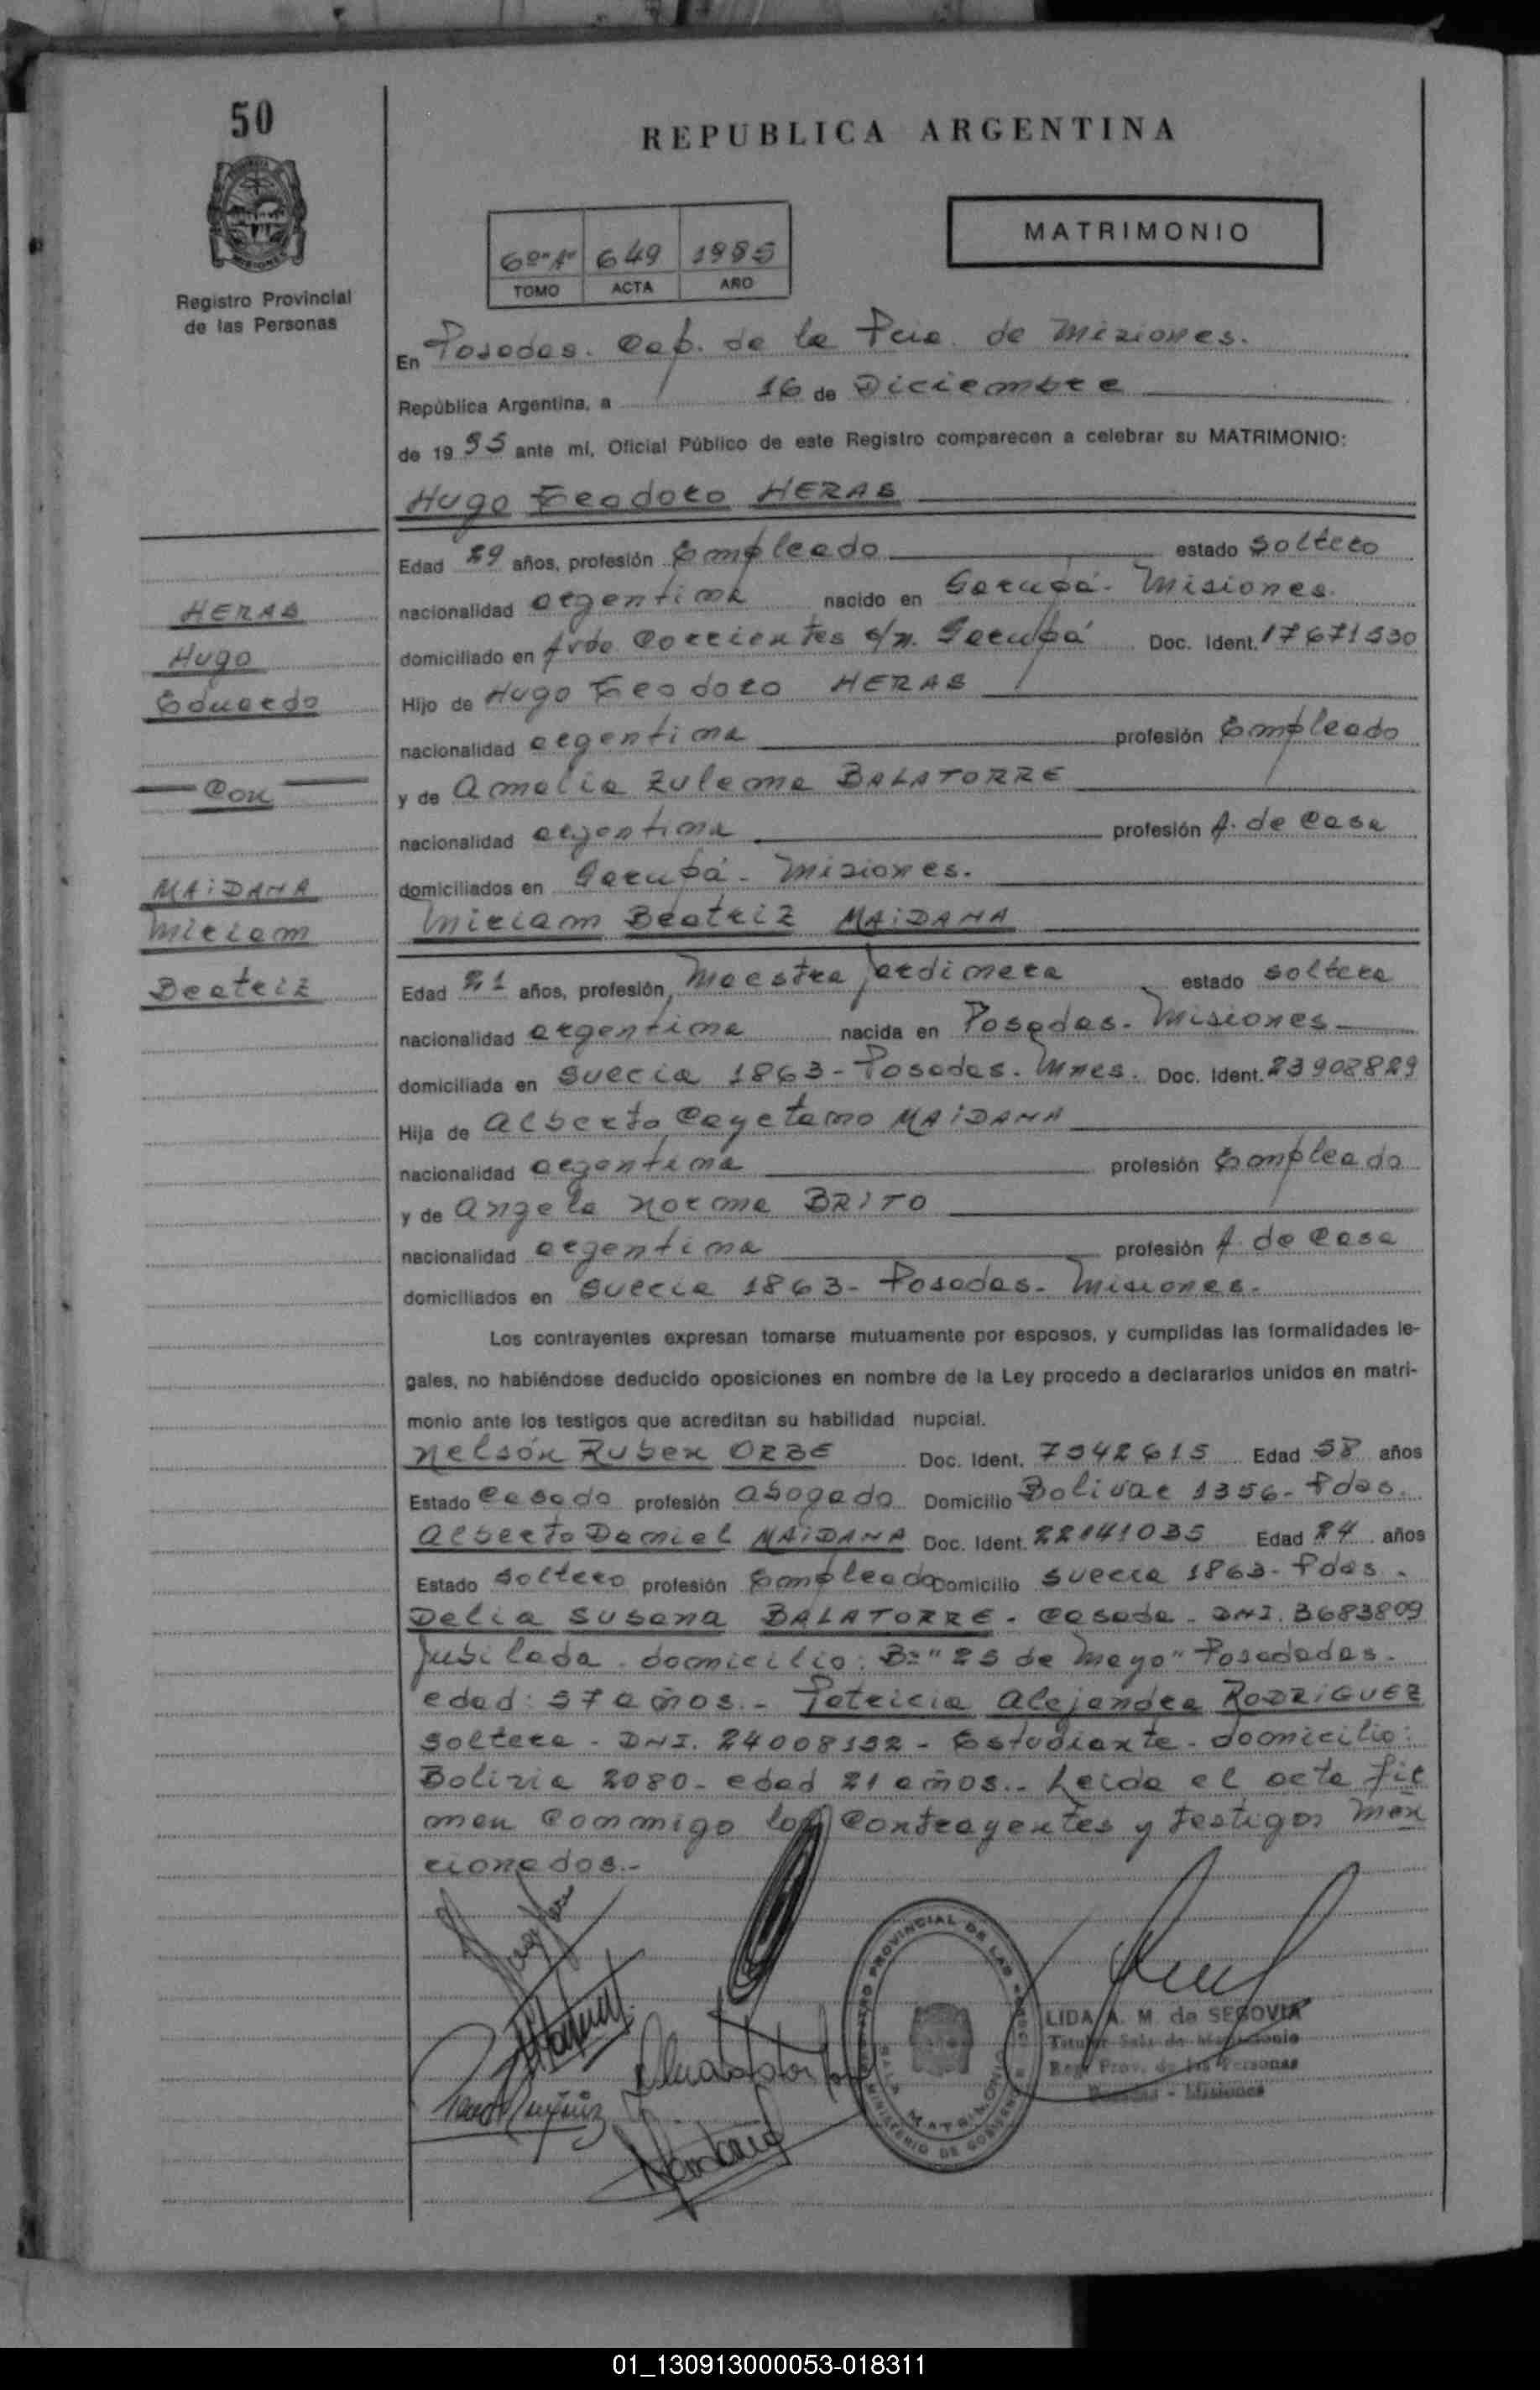 50
REPUBLICA ARGENTINA
MATRIMONIO
6º "A" 649 1995
TOMO ACTA AÑO
Registro Provincial
de las Personas
En Posadas. Cap. de la Pcia. de Misiones.
República Argentina, a 16 de Diciembre
de 19 95 ante mí, Oficial Público de este Registro comparecen a celebrar su MATRIMONIO:
Hugo Teodoro HERAS
Edad 29 años, profesión Empleado estado soltero
nacionalidad argentina nacido en Garupá - Misiones.
domiciliado en Avda Corrientes s/n. Garupá Doc. Ident. 17671530
Hijo de Hugo Teodoro HERAS
nacionalidad argentina profesión Empleado
y de Amalia Zulema BALATORRE
nacionalidad argentina profesión A. de Casa
domiciliados en Garupá - Misiones.
Miriam Beatriz MAIDANA
Edad 21 años, profesión, Maestra Jardinera estado soltera
nacionalidad argentina nacida en Posadas - Misiones
domiciliada en Suecia 1863 - Posadas. Mnes. Doc. Ident. 23908829
Hija de Alberto Cayetano MAIDANA
nacionalidad argentina profesión Empleado
y de Angela Norma BRITO
nacionalidad argentina profesión A. de Casa
domiciliados en Suecia 1863 - Posadas - Misiones.
Los contrayentes expresan tomarse mutuamente por esposos, y cumplidas las formalidades le-
gales, no habiéndose deducido oposiciones en nombre de la Ley procedo a declararlos unidos en matri-
monio ante los testigos que acreditan su habilidad nupcial.
Nelsón Ruben ORBE Doc. Ident. 7542615 Edad 58 años
Estado Casado profesión Abogado Domicilio Bolivar 1356 - Pdas.
Alberto Daniel MAIDANA Doc. Ident. 22141035 Edad 24 años
Estado soltero profesión Empleado Domicilio Suecia 1863 - Pdas.
Delia Susana BALATORRE - Casada - DNI. 3683809
Jubilada - domicilio: Bº "25 de Mayo" Posadadas -
edad: 57 años. - Patricia Alejandra RODRIGUEZ
Soltera - DNI. 24008132 - Estudiante - domicilio:
Bolivia 2080 - edad 21 años. - Leída el acta fir
man conmigo los contrayentes y testigos men
cionados. -
HERAS
Hugo
Eduardo
Con
MAIDANA
Miriam
Beatriz
REGISTRO PROVINCIAL DE LAS PERSONAS
SALA MATRIMONIO
MINISTERIO DE GOBIERNO
LIDA A. M. de SEGOVIA
Titular Sala de Matrimonio
Reg. Prov. de las Personas
Posadas - Misiones
01_130913000053-018311